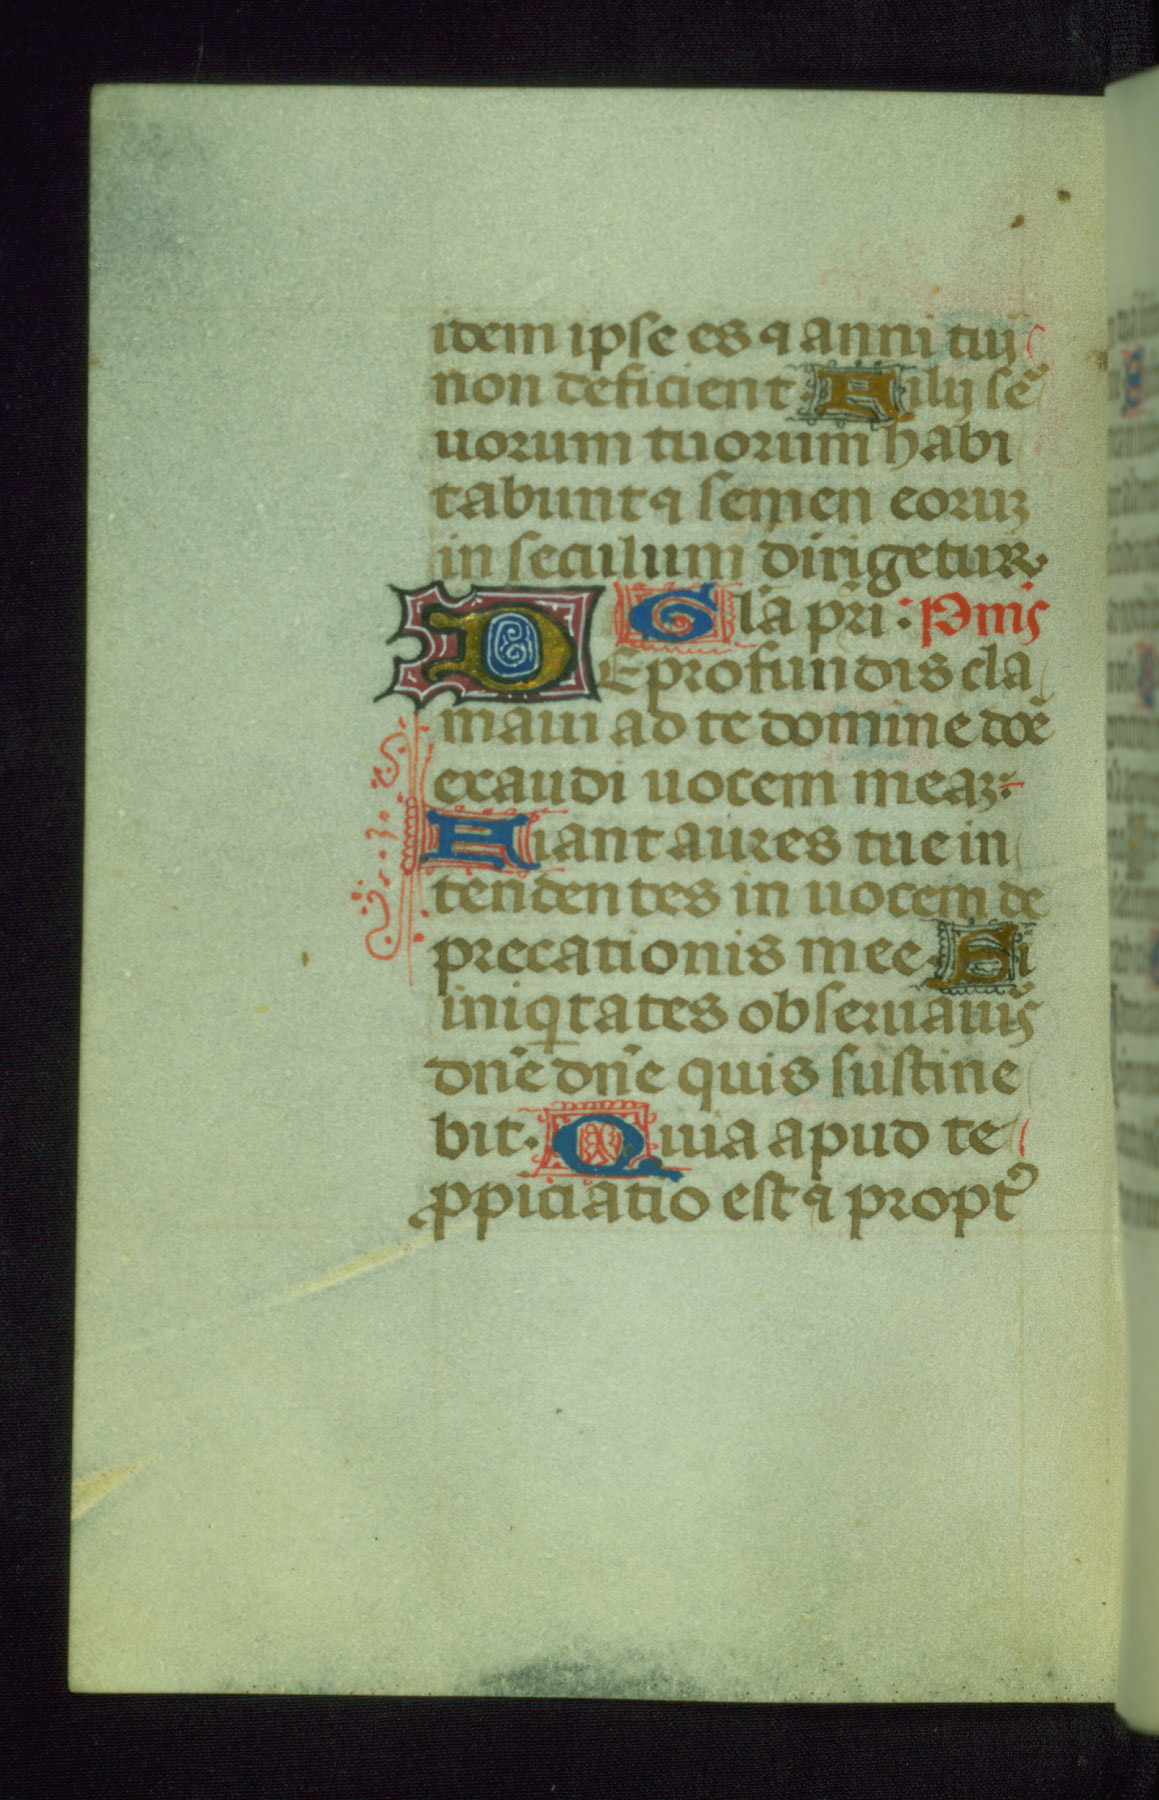 idem ipse es ⁊ anni tui
non deficient. Filij sẽ
uorum tuorum habi
tabunt ⁊ semen eoruꝫ
in seculum dirigetur.
Gl'a pr̃i: Pm̃s
DE profundis cla
maui ad te domine dñe
exaudi uocem meaꝫ.
Fiant aures tue in
tendentes in uocem de
precationis mee. Si
iniq̃tates obseruauis̃
dñe dñe quis sustine
bit. Quia apud te
ꝓpiciatio est ⁊ propt̾